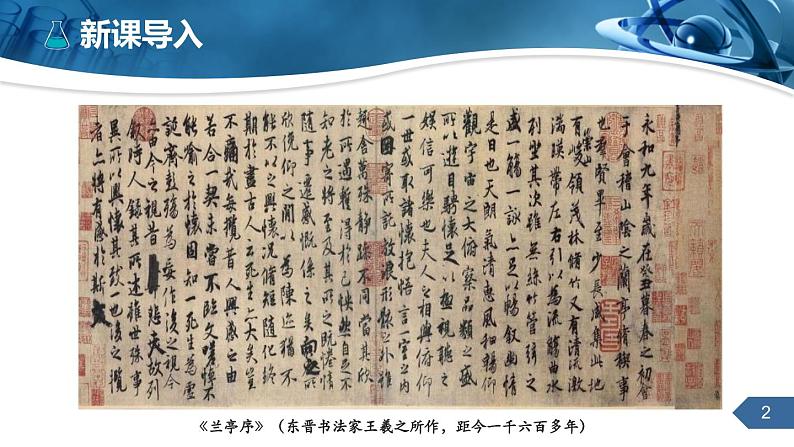 新课导入
永和九年歲在癸丑暮春之初會
于會稽山陰之蘭亭脩稧事
也羣賢畢至少長咸集此地
有崇山峻領茂林脩竹又有清流激
湍暎帶左右引以為流觴曲水
列坐其次雖無絲竹管弦之
盛一觴一詠亦足以暢敘幽情
是日也天朗氣清惠風和暢仰
觀宇宙之大俯察品類之盛
所以遊目騁懷足以極視聽之
娛信可樂也夫人之相與俯仰
一世或取諸懷抱悟言一室之內
或因寄所託放浪形骸之外雖
趣舍萬殊靜躁不同當其欣
於所遇暫得於己怏然自足不
知老之將至及其所之既惓情
隨事遷感慨係之矣向之所
欣俛仰之閒以為陳迹猶不
能不以之興懷況脩短隨化終
期於盡古人云死生亦大矣豈
不痛哉每攬昔人興感之由
若合一契未嘗不臨文嗟悼不
能喻之於懷固知一死生為虛
誕齊彭殤為妄作後之視今
亦由今之視昔悲夫故列
敘時人錄其所述雖世殊事
異所以興懷其致一也後之攬
者亦將有感於斯文
《兰亭序》（东晋书法家王羲之所作，距今一千六百多年）
2